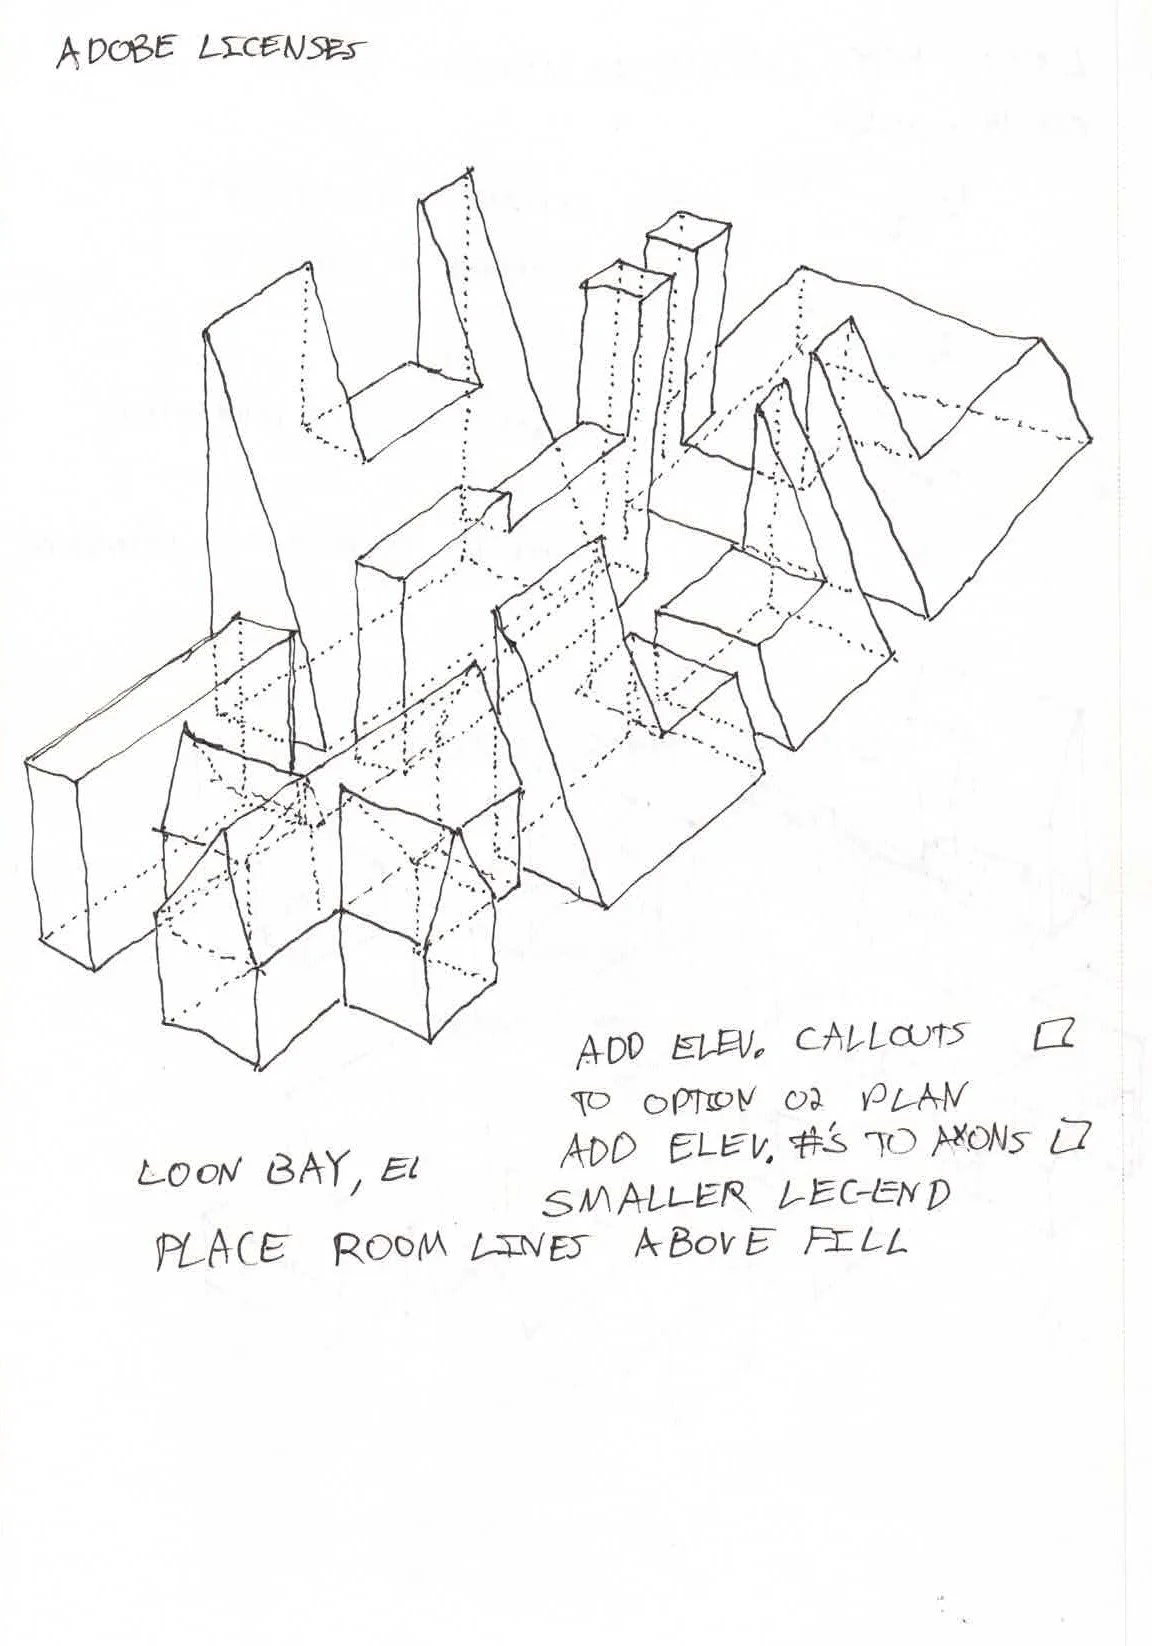 ADOBE LICENSES
ADD ELEV. CALLOUTS
TO OPTION 02 PLAN
ADD ELEV. #'S TO AXONS
LOON BAY, EL
SMALLER LEGEND
PLACE ROOM LINES ABOVE FILL